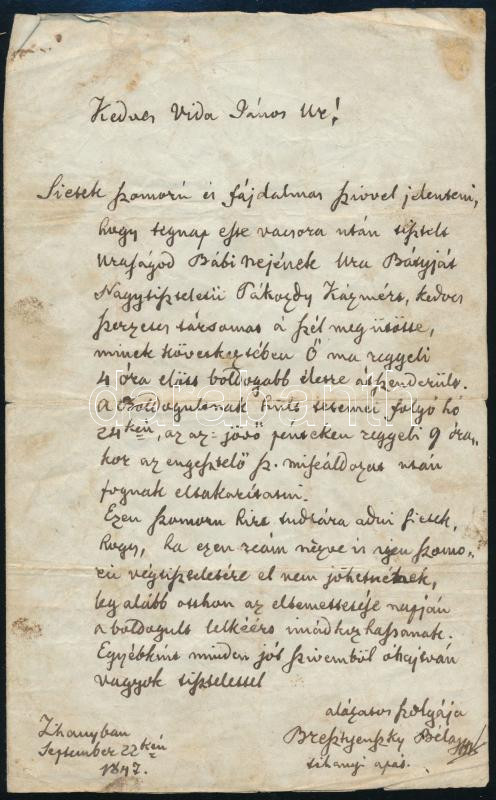 Kedves Vida János Ur!
Sietek szomorú és fájdalmas szivvel jelenteni,
hogy tegnap este vacsora után tisztelt
Uraságod Bábi Nejének Ura Bátyját
Nagytiszteletü Pákozdy Kázmért, kedves
szerzetes társamat á szél megütötte,
minek következtében Ő ma reggeli
4 óra előtt boldogabb életre átszenderült.
A Boldogultnak hült tetemei folyó hó
24kén, az az: jövő pénteken reggeli 9 óra-
kor az engesztelő sz. miseáldozat után
fognak eltakaríttatni.
Ezen szomoru hirt tudtára adni sietek,
hogy, ha ezen reám nézve is igen szomo-
rú végtiszteletére el nem jöhetnének,
legalább otthon az eltemettetése napján
a boldogult lelkéért imádkozhassanak.
Egyébként minden jót szivemből óhajtván
vagyok tisztelettel
alázatos szolgája
Bresztyenszky Béla
tihanyi apát.
Tihanyban
September 22kén
1847.
darabanth